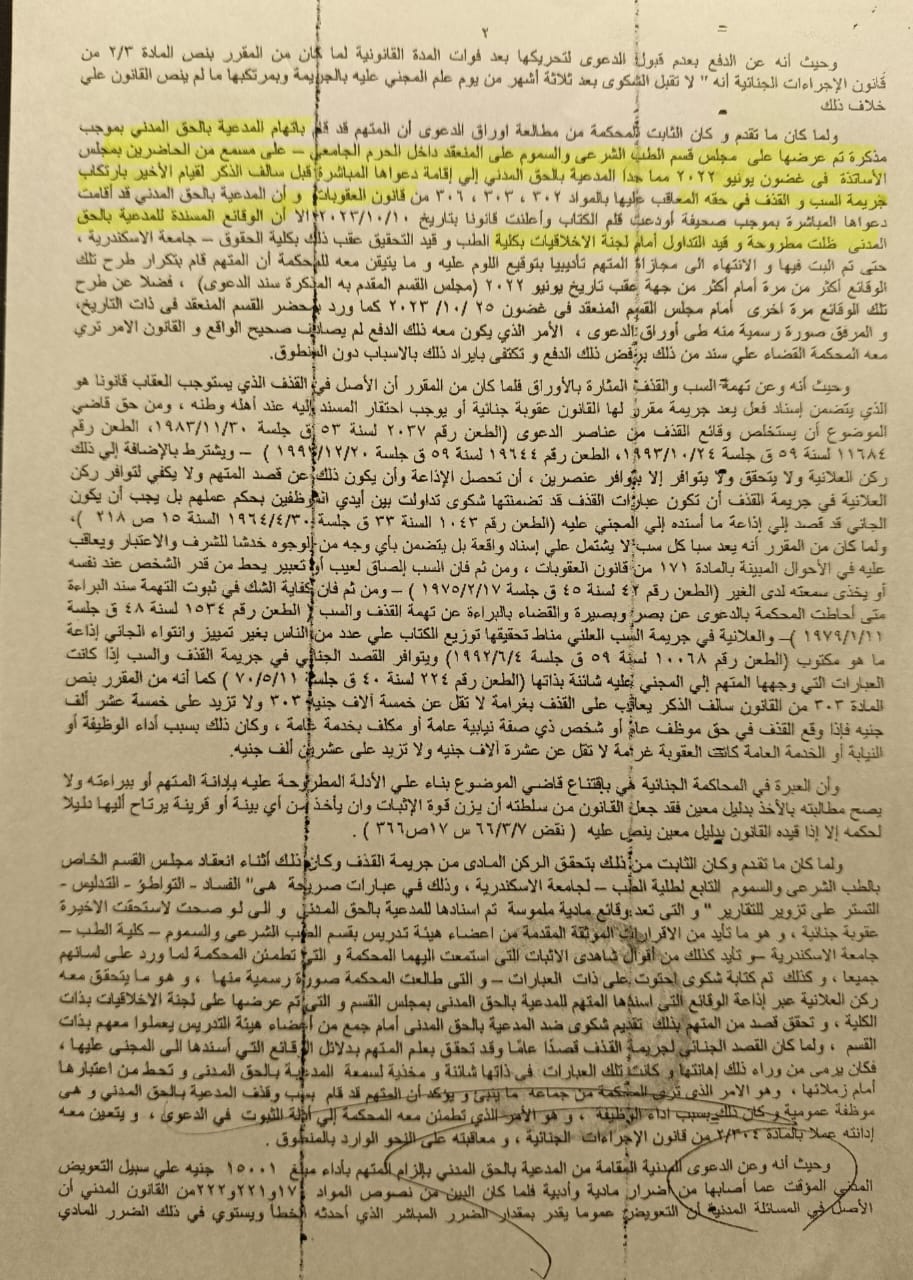 ٢
وحيث أنه عن الدفع بعدم قبول الدعوى لتحريكها بعد فوات المدة القانونية لما كان من المقرر بنص المادة ٢/٣ من
قانون الإجراءات الجنائية أنه " لا تقبل الشكوى بعد ثلاثة أشهر من يوم علم المجني عليه بالجريمة وبمرتكبها ما لم ينص القانون علي
خلاف ذلك
ولما كان ما تقدم و كان الثابت للمحكمة من مطالعة اوراق الدعوى أن المتهم قد قام باتهام المدعية بالحق المدني بموجب
مذكرة تم عرضها على مجلس قسم الطب الشرعى والسموم على المنعقد داخل الحرم الجامعي – على مسمع من الحاضرين بمجلس
الأساتذة فى غضون يونيو ٢٠٢٢ مما حدا المدعية بالحق المدني إلي إقامة دعواها المباشرة قبل سالف الذكر لقيام الأخير بارتكاب
جريمة السب و القذف في حقه المعاقب عليها بالمواد ٣٠٢ ، ٣٠٣ ، ٣٠٦ من قانون العقوبات و أن المدعية بالحق المدني قد أقامت
دعواها المباشرة بموجب صحيفة أودعت قلم الكتاب وأعلنت قانونا بتاريخ ٢٠٢٣/١٠/١٠ الا أن الوقائع المسندة للمدعية بالحق
المدنى ظلت مطروحة و قيد التداول أمام لجنة الاخلاقيات بكلية الطب و قيد التحقيق عقب ذلك بكلية الحقوق – جامعة الاسكندرية ،
حتى تم البت فيها و الانتهاء الى مجازاة المتهم تأديبيا بتوقيع اللوم عليه و ما يتيقن معه للمحكمة أن المتهم قام بتكرار طرح تلك
الوقائع أكثر من مرة أمام أكثر من جهة عقب تاريخ يونيو ٢٠٢٢ (مجلس القسم المقدم به المذكرة سند الدعوى) ، فضلا عن طرح
تلك الوقائع مرة اخرى أمام مجلس القسم المنعقد في غضون ٢٥ /١٠/ ٢٠٢٣ كما ورد بمحضر القسم المنعقد فى ذات التاريخ،
و المرفق صورة رسمية منه طى أوراق الدعوى ، الأمر الذي يكون معه ذلك الدفع لم يصادف صحيح الواقع و القانون الامر تري
معه المحكمة القضاء علي سند من ذلك برفض ذلك الدفع و تكتفى بايراد ذلك بالاسباب دون المنطوق.
وحيث أنه وعن تهمة السب والقذف المثارة بالأوراق فلما كان من المقرر أن الأصل في القذف الذي يستوجب العقاب قانونا هو
الذي يتضمن إسناد فعل يعد جريمة مقرر لها القانون عقوبة جنائية أو يوجب احتقار المسند إليه عند أهله وطنه ، ومن حق قاضي
الموضوع أن يستخلص وقائع القذف من عناصر الدعوى (الطعن رقم ٢٠٣٧ لسنة ٥٣ ق جلسة ١٩٨٣/١١/٣٠، الطعن رقم
١١٦٨٤ لسنة ٥٩ ق جلسة ١٩٩٣/١٠/٢٤، الطعن رقم ١٩٦٤٤ لسنة ٥٩ ق جلسة /١٢/٢٠ ) – ويشترط بالإضافة إلي ذلك
ركن العلانية ولا يتحقق ولا يتوافر إلا بتوافر عنصرين ، أن تحصل الإذاعة وأن يكون ذلك عن قصد المتهم ولا يكفي لتوافر ركن
العلانية في جريمة القذف أن تكون عبارات القذف قد تضمنتها شكوى تداولت بين أيدي الموظفين بحكم عملهم بل يجب أن يكون
الجاني قد قصد إلي إذاعة ما أسنده إلي المجني عليه (الطعن رقم ١٠٤٣ لسنة ٣٣ ق جلسة ١٩٦٤/٤/٣٠ السنة ١٥ ص ٢١٨ )،
ولما كان من المقرر أنه يعد سبا كل سب لا يشتمل علي إسناد واقعة بل يتضمن بأي وجه من الوجوه خدشا للشرف والاعتبار ويعاقب
عليه في الأحوال المبينة بالمادة ١٧١ من قانون العقوبات ، ومن ثم فان السب إلصاق لعيب أو تعبير يحط من قدر الشخص عند نفسه
أو يخدى سمعته لدى الغير (الطعن رقم ٤٢ لسنة ٤٥ ق جلسة ١٩٧٥/٢/١٧ ) – ومن ثم فان كفاية الشك في ثبوت التهمة سند البراءة
متى أحاطت المحكمة بالدعوى عن بصر وبصيرة والقضاء بالبراءة عن تهمة القذف والسب ( الطعن رقم ١٥٣٤ لسنة ٤٨ ق جلسة
١٩٧٩/١/١١ )– والعلانية في جريمة السب العلني مناط تحقيقها توزيع الكتاب علي عدد من الناس بغير تمييز وانتواء الجاني إذاعة
ما هو مكتوب (الطعن رقم ١٠٠٦٨ لسنة ٥٩ ق جلسة ١٩٩٢/٦/٤) ويتوافر القصد الجنائي في جريمة القذف والسب إذا كانت
العبارات التي وجهها المتهم إلي المجني عليه شائنة بذاتها (الطعن رقم ٢٢٤ لسنة ٤٠ ق جلسة ٧٠/٥/١١ ) كما أنه من المقرر بنص
المادة ٣٠٣ من القانون سالف الذكر يعاقب على القذف بغرامة لا تقل عن خمسة آلاف جنيه ٣٠٣ ولا تزيد على خمسة عشر ألف
جنيه فإذا وقع القذف في حق موظف عام أو شخص ذي صفة نيابية عامة أو مكلف بخدمة عامة ، وكان ذلك بسبب أداء الوظيفة أو
النيابة أو الخدمة العامة كانت العقوبة غرامة لا تقل عن عشرة آلاف جنيه ولا تزيد على عشرين ألف جنيه.
وأن العبرة في المحاكمة الجنائية هي بإقتناع قاضي الموضوع بناء علي الأدلة المطروحة عليه بإدانة المتهم أو ببراءته ولا
يصح مطالبته بالأخذ بدليل معين فقد جعل القانون من سلطته أن يزن قوة الإثبات وان يأخذ من أي بينة أو قرينة يرتاح أليها دليلا
لحكمه إلا إذا قيده القانون بدليل معين ينص عليه ( نقض ٦٦/٣/٧ س ١٧ص٣٦٦ ) .
ولما كان ما تقدم وكان الثابت من ذلك بتحقق الركن المادى من جريمة القذف وكان ذلك أثناء انعقاد مجلس القسم الخاص
بالطب الشرعى والسموم التابع لطلبة الطب – لجامعة الاسكندرية ، وذلك في عبارات صريحة هى" الفساد - التواطؤ - التدليس -
التستر على تزوير للتقارير " و التى تعد وقائع مادية ملموسة تم اسنادها للمدعية بالحق المدنى و الى لو صحت لاستحقت الاخيرة
عقوبة جنائية ، و هو ما تأيد من الاقرارات الموثقة المقدمة من اعضاء هيئة تدريس بقسم الطب الشرعى والسموم – كلية الطب –
جامعة الاسكندرية –و تأيد كذلك من أقوال شاهدى الاثبات التى استمعت اليهما المحكمة و التى تطمئن المحكمة لما ورد على لسانهم
جميعا ، و كذلك تم كتابة شكوى احتوت على ذات العبارات – و التى طالعت المحكمة صورة رسمية منها ، و هو ما يتحقق معه
ركن العلانية عبر إذاعة الوقائع التى اسندها المتهم للمدعية بالحق المدنى بمجلس القسم و التى تم عرضها على لجنة الاخلاقيات بذات
الكلية ، و تحقق قصد من المتهم بذلك تقديم شكوى ضد المدعية بالحق المدنى أمام جمع من أعضاء هيئة التدريس يعملوا معهم بذات
القسم ، ولما كان القصد الجنائي لجريمة القذف قصدًا عامًا وقد تحقق بعلم المتهم بدلائل الوقائع التي أسندها الى المجنى عليها ،
فكان يرمى من وراء ذلك إهانتها و كانت تلك العبارات فى ذاتها شائنة و مخذية لسمعة المدعية بالحق المدنى و تحط من اعتبارها
أمام زملائها ، وهو الامر الذى ترى المحكمة من جماعه ما ينبئ و يؤكد أن المتهم قد قام بسب وقذف المدعية بالحق المدنى و هى
موظفة عمومية و كان ذلك بسبب اداء الوظيفة ، و هو الأمر الذي تطمئن معه المحكمة إلي أدلة الثبوت في الدعوى ، و يتعين معه
إدانته عملا بالمادة ٢/٣٠٤ من قانون الإجراءات الجنائية ، و معاقبته على النحو الوارد بالمنطوق .
وحيث أنه وعن الدعوى المدنية المقامة من المدعية بالحق المدني بإلزام المتهم بأداء مبلغ ١٥٠٠١ جنيه علي سبيل التعويض
المدني المؤقت عما أصابها من أضرار مادية وأدبية فلما كان البين من نصوص المواد ١٧٠و٢٢١و٢٢٢من القانون المدني أن
الأصل في المسائلة المدنية أن التعويض عموما يقدر بمقدار الضرر المباشر الذي أحدثه الخطأ ويستوي في ذلك الضرر المادي